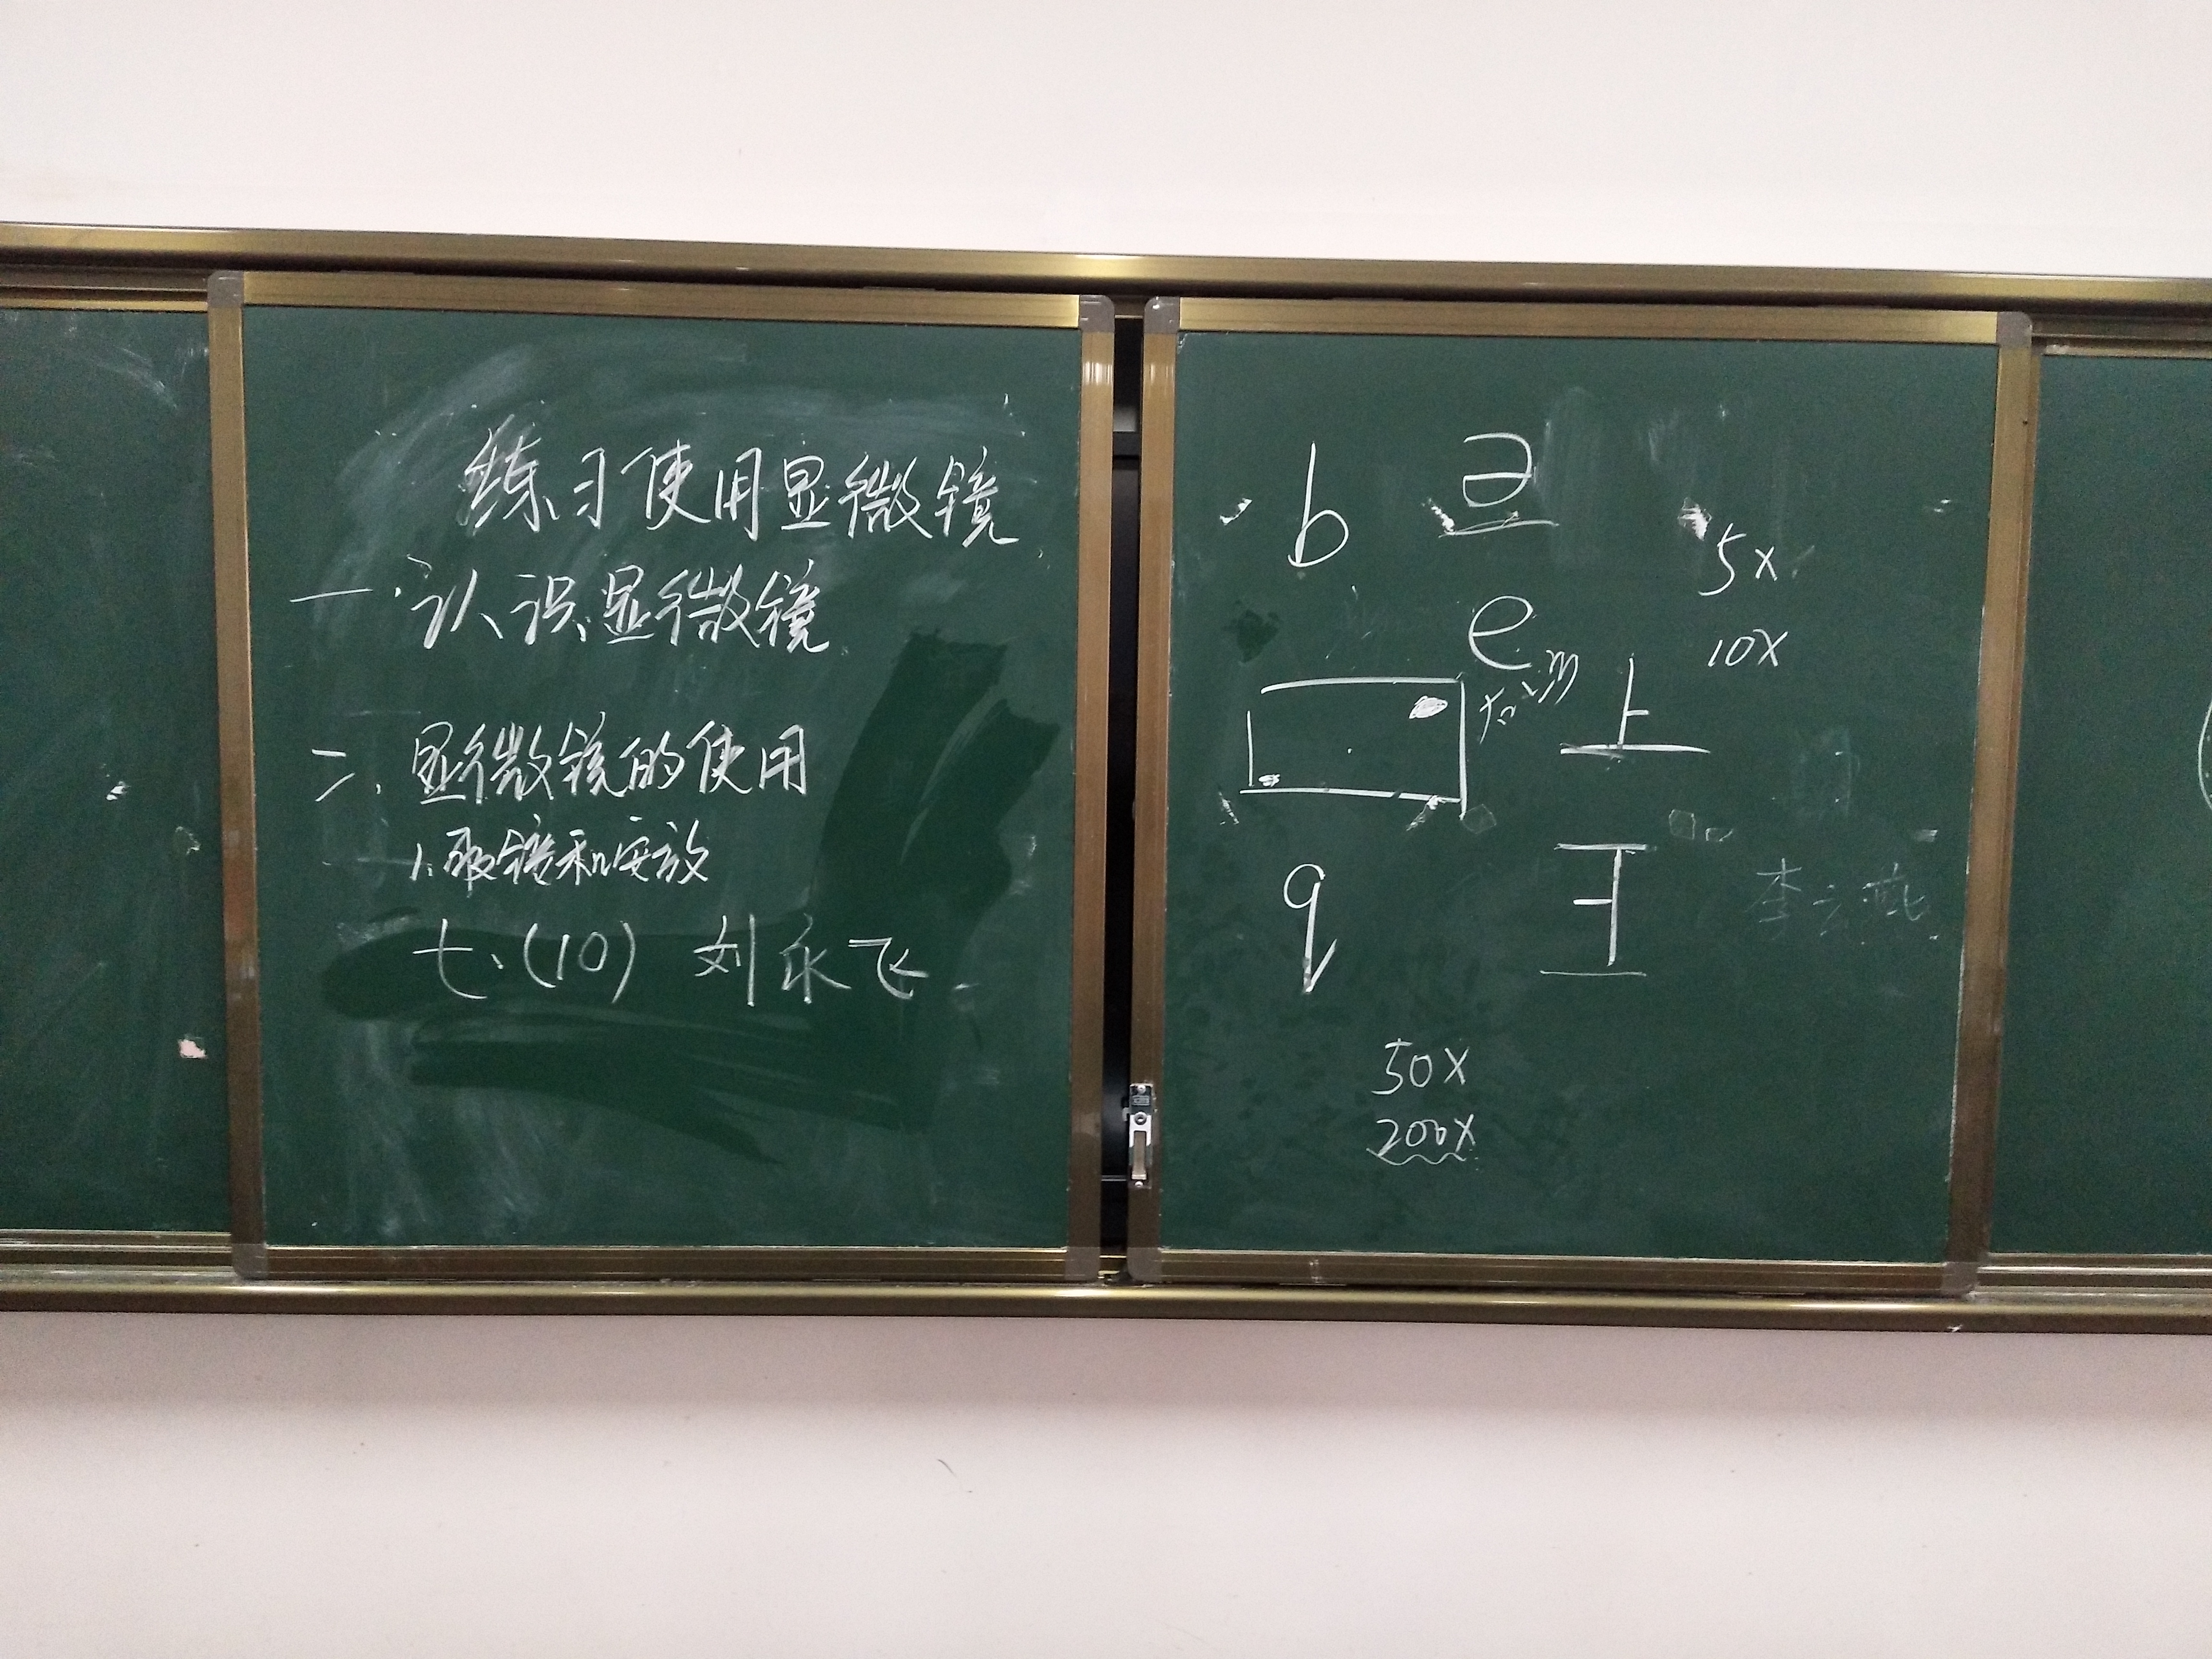 练习使用显微镜
一.认识显微镜
二.显微镜的使用
1.取镜和安放
七.(10) 刘永飞
b
e
5x
10x
上
q
50x
200x